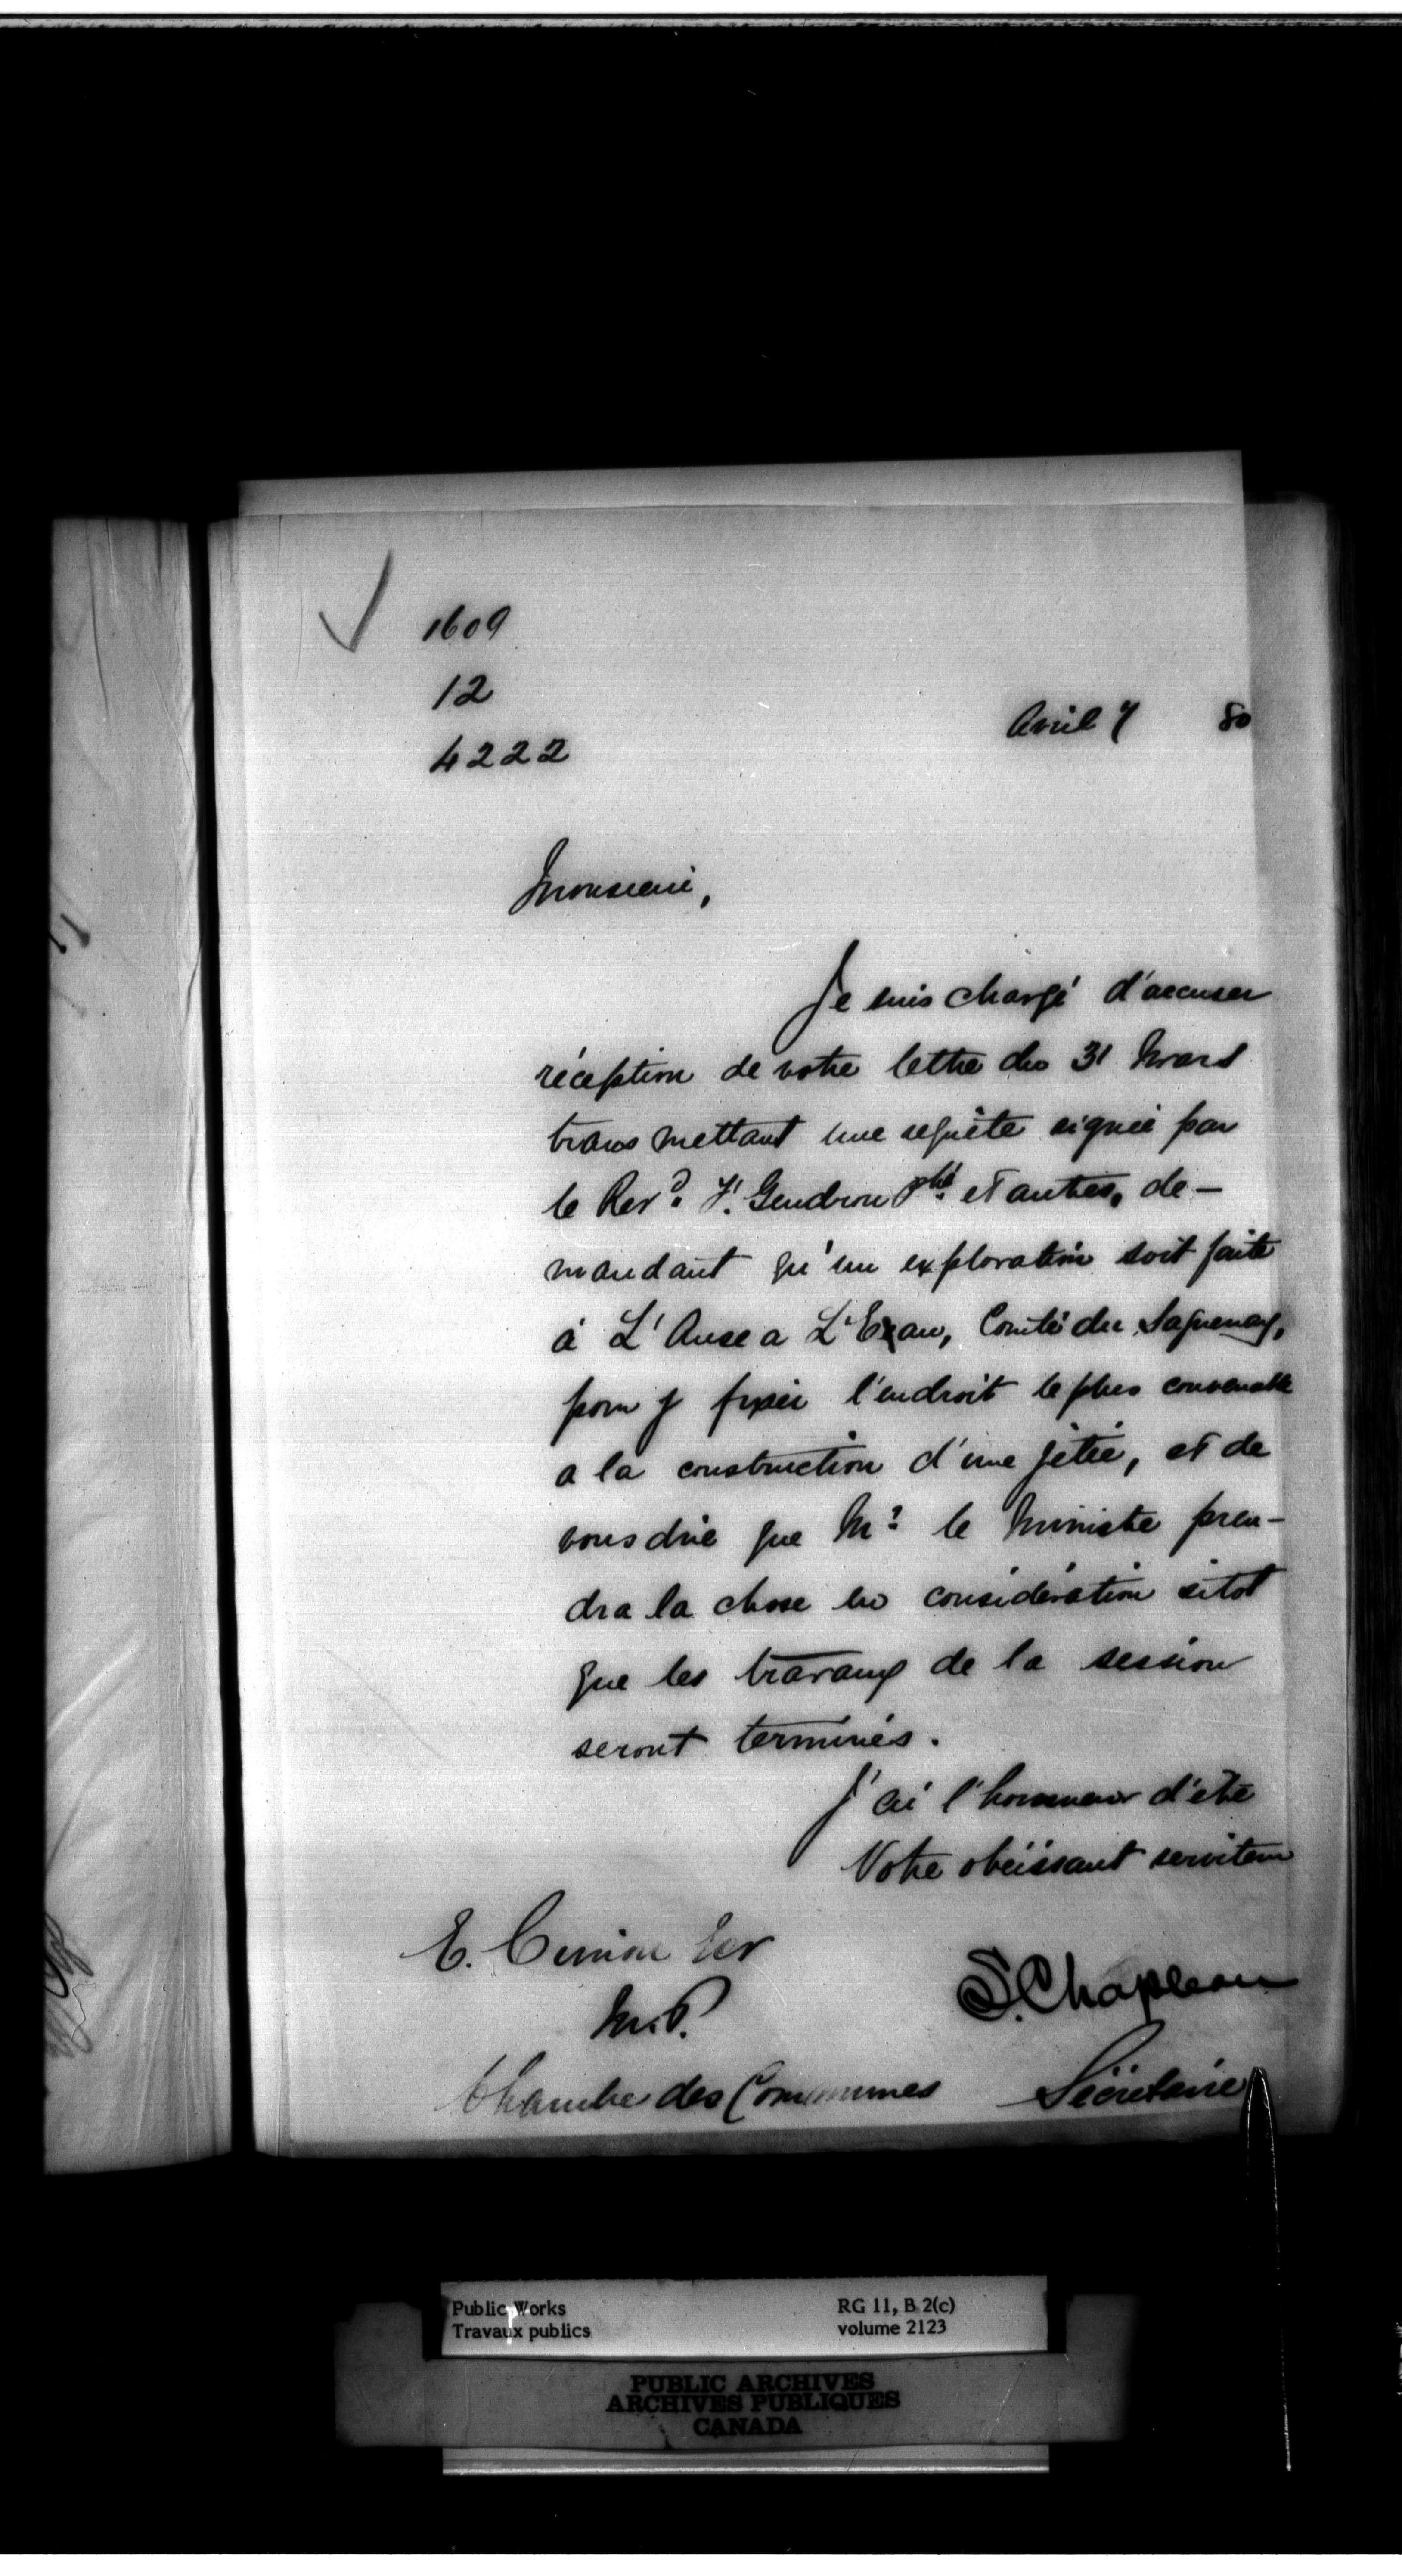 1609
12
4222
Avril 7 80
Monsieur,
Je suis chargé d'accuser
réception de votre lettre du 31 Mars
transmettant une requête signée par
le Revd. F. Gendron Ptre et autres, de-
mandant qu'un exploration soit faite
à L'Anse a L'Eau, Comté du Saguenay,
pour y fixer l'endroit le plus convenable
a la construction d'une jetée, et de
vous dire que Mr. le Ministre pren-
dra la chose en considération sitot
que les travaux de la session
seront terminés.
J'ai l'honneur d'être
Votre obéissant serviteur
E. Cimon Ecr
M.P.
Chambre des Communes
S. Chapleau
Sécretaire
Public Works
Travaux publics
RG 11, B 2(c)
volume 2123
PUBLIC ARCHIVES
ARCHIVES PUBLIQUES
CANADA